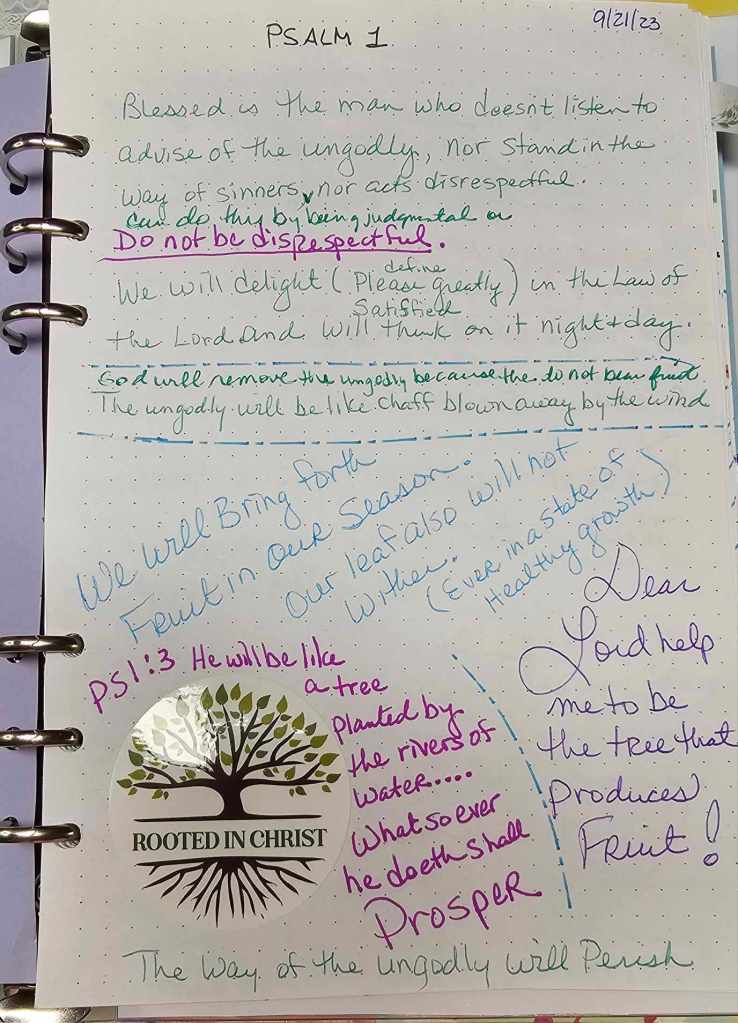 9/21/23
PSALM 1
Blessed is the man who doesn't listen to
advise of the ungodly, nor stand in the
way of sinners, nor acts disrespectful.
can do this by being judgmental or
Do not be disrespectful.
define
We will delight (Please greatly) in the Law of
Satisfied
the Lord and will think on it night & day.
God will remove the ungodly because the do not bear fruit
The ungodly will be like chaff blown away by the wind
We will Bring forth
Fruit in our Season.
Our leaf also will not
wither.
(Ever in a state of
Healthy growth)
Dear
Lord help
me to be
the tree that
produces
Fruit!
PS1:3 He will be like
a tree
planted by
the rivers of
water....
What so ever
he doeth shall
Prosper
ROOTED IN CHRIST
The Way of the ungodly will Perish